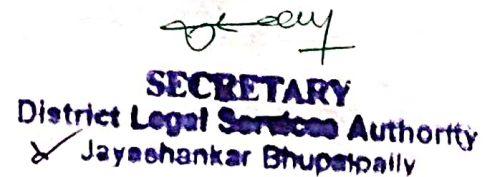 SECRETARY
District Legal Services Authority
Jayashankar Bhupalpally